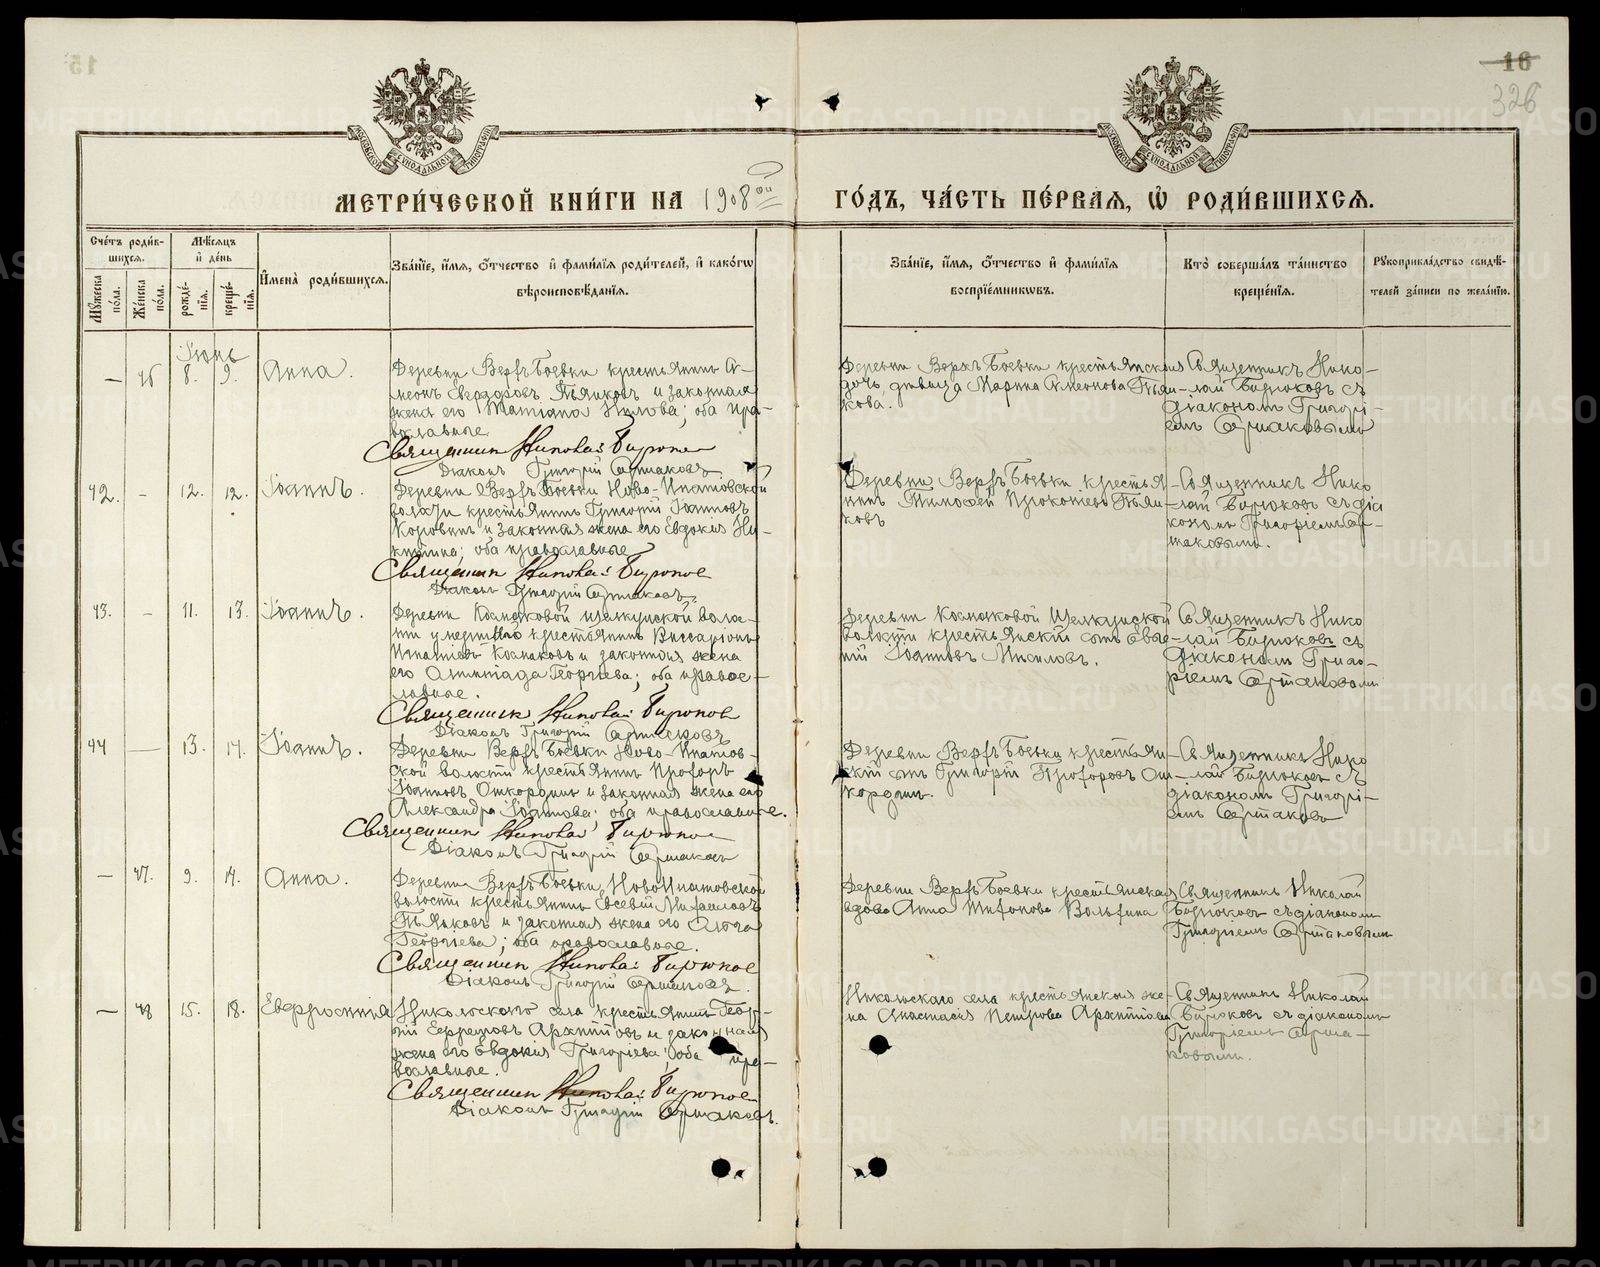 16
326
МЕТРИ́ЧЕСКОЙ КНИ́ГИ НА 1908ой ГО́ДЪ, ЧА́СТЬ ПЕ́РВАѦ, Ѽ РОДИ́ВШИХСѦ.
Сче́тъ роди́в-
шихсѧ.
Мꙋ́жеска по́ла.
Же́нска по́ла.
Мѣ́сѧцъ
и҆ де́нь
рожде́-
нїѧ.
креще́-
нїѧ.
И҆мена̀ роди́вшихсѧ.
Зва́нїе, и҆́мѧ, ѻ҆́тчество и҆ фами́лїѧ роди́телей, и҆ како́гѡ
вѣроисповѣ́данїѧ.
Зва́нїе, и҆́мѧ, ѻ҆́тчество и҆ фами́лїѧ
воспрїе́мникѡвъ.
Кто̀ соверша́лъ та́инство
креще́нїѧ.
Рꙋкоприкла́дство свидѣ́-
телей за́писи по жела́нїю.
Іюнь
— 46 8. 9. Анна.
Деревни Верхъ Боевки крестьянинъ Си-
меонъ Пьянковъ и законная
жена его Татіана ; оба пра-
вославные
Священник Николай Бирюков
Діаконъ Григорій Ермаковъ
Деревни Верхъ Боевки крестьянская
дочь, девица Марина Симеонова Пьян-
кова.
Священникъ Нико-
лай Бирюковъ съ
діакономъ Григорі-
емъ Ермаковымъ
42. – 12. 12. Іоаннъ.
Деревни Верхъ Боевки Ново-Ипатовской
волости крестьянинъ Григорій Іоанновъ
Коровинъ и законная жена его Евдокия Ни-
китина; оба православные
Священник Николай Бирюков
Діаконъ Григорій Ермаковъ.
Деревни Верхъ Боевки крестья-
нинъ Тимофей Прокопіевъ Пьян-
ковъ
Священникъ Нико
лай Бирюковъ съ діа
кономъ Григоріемъ Ер-
маковымъ.
43. – 11. 13. Іоаннъ.
Деревни Космаковой Щелкунской воло-
сти умершаго крестьянинъ Виссаріонъ
Игнатіевъ Космаковъ и законная жена
его Олимпіада Георгіева; оба право-
славные.
Священник Николай Бирюков
Діаконъ Григорій Ермаковъ
Деревни Космаковой Щелкунской
волости крестьянскій сынъ
Іоанновъ .
Священникъ Нико
лай Бирюковъ съ
діакономъ Григо-
ріемъ Ермаковымъ
44 — 13. 14. Іоаннъ.
Деревни Верхъ Боевки Ново-Ипатов-
ской волости крестьянинъ Прохоръ
Іоанновъ и законная жена его
Александра Іоаннова; оба православные.
Священник Николай Бирюков
Діаконъ Григорій Ермаковъ
Деревни Верхъ Боевки крестьян-
скій сынъ Григорій Прохоровъ
Священникъ Нико
лай Бирюковъ съ
діакономъ Григорі-
емъ Ермаково
— 47. 9. 14. Анна.
Деревни Верхъ Боевки Ново Ипатовской
волости крестьянинъ Евсевій
Пьянковъ и законная жена его
Георгіева; оба православные.
Священник Николай Бирюков
Діаконъ Григорій Ермаковъ.
Деревни Верхъ Боевки крестьянская
вдова Анна
Священникъ Николай
Бирюковъ съ діакономъ
Григоріемъ Ермаковымъ
— 48 15. 18. Евфросинія
Никольскаго села крестьянинъ Геор-
гій Ефремовъ Архиповъ и законная
жена его Евдокия Григоріева; оба пра-
вославные.
Священник Николай Бирюков
Діаконъ Григорій Ермаковъ.
Никольскаго села крестьянская же-
на Анастасія Петрова Архипова
Священникъ Николай
Бирюковъ съ діакономъ
Григоріемъ Ерма-
ковымъ.